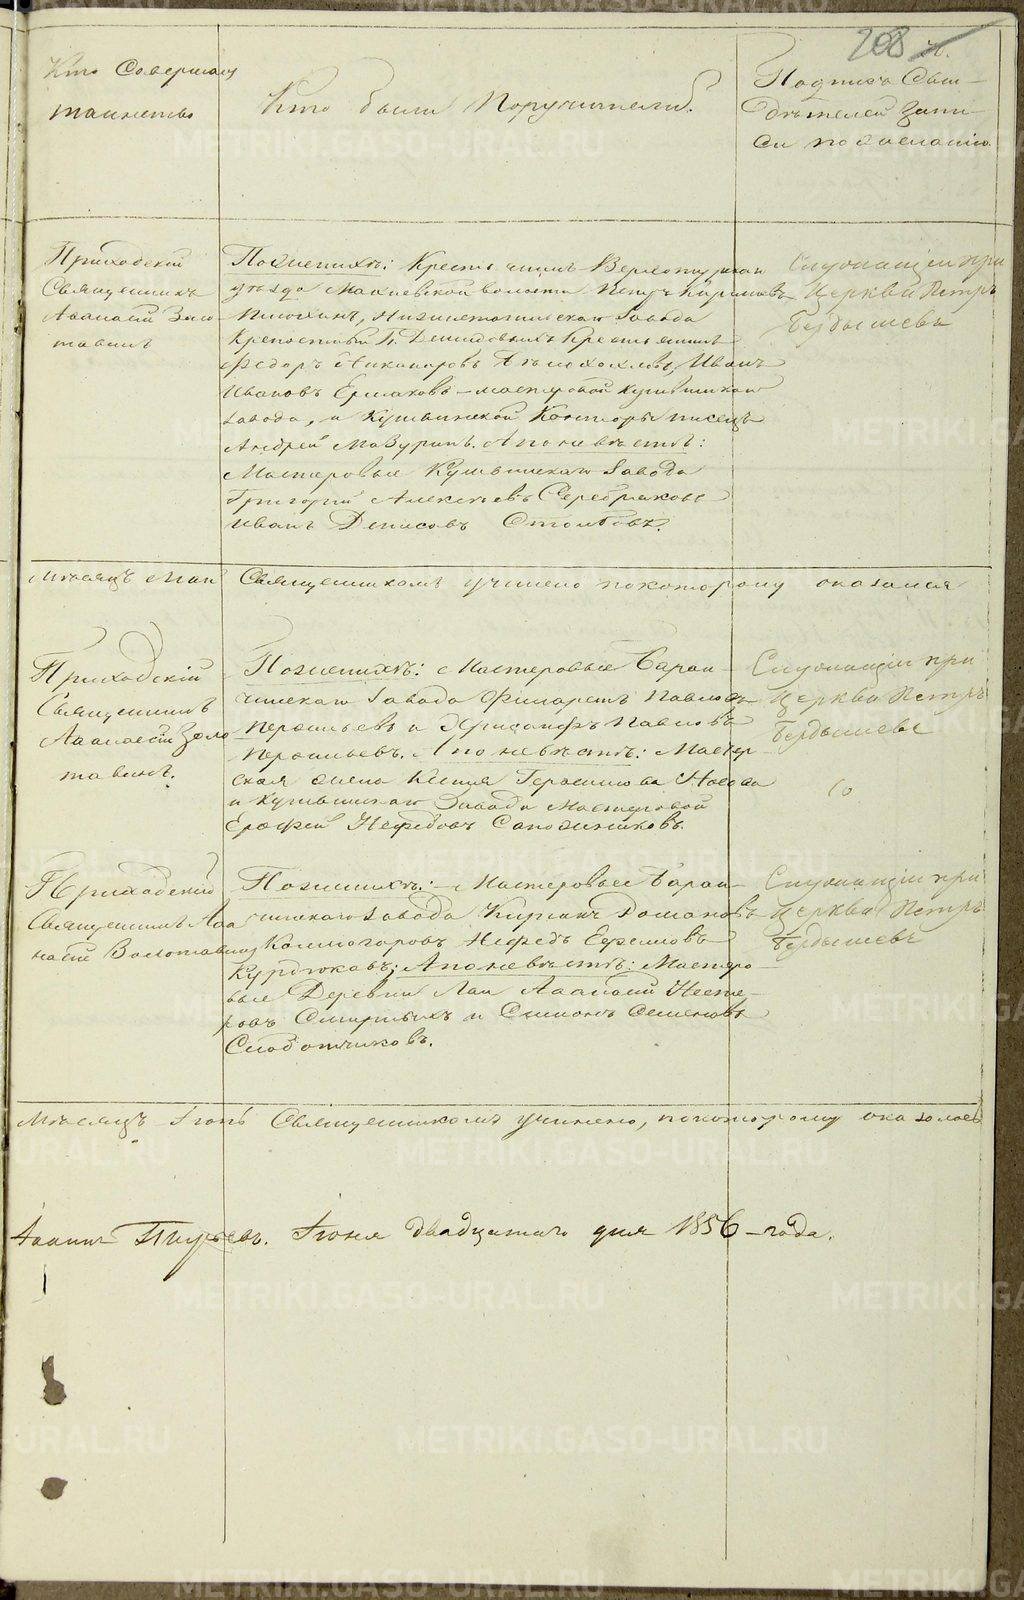 208
Кто Совершалъ
таинство
Кто были Поручители.
Подпись Сви-
дѣтелей запи-
си по желанію.
Приходскій
Священникъ
Аѳанасій Золо
тавинъ
По женихѣ: Крестьянинъ Верхотурскаго
уѣзда Махневской волости Петръ Кириловъ
Нижнетагильскаго Завода
Крепостный Г. Демидовыхъ Крестьянинъ
Федоръ Никаноровъ Иванъ
Ивановъ Ермаковъ – мастеровой Кушвинскаго
завода, и Кушвинской Конторы писецъ
Андрей Мазуринъ. А по невѣстѣ:
Мастеровые Кушвинскаго Завода
Григорій Алексѣевъ Серебряковъ
Иванъ Денисовъ Столбовъ.
Служащій при
Церкви Петръ
Бердышевъ
Мѣсяцъ Май Священникомъ учинено по которому оказалося
Приходскій
Священникъ
Аѳанасій Золо
тавинъ.
По женихѣ: Мастеровые Баран-
чинскаго Завода Филаретъ Павловъ
и Хрисанфъ Павловъ
А по невѣстѣ: Мастер-
ская жена Ксенія Герасимова Носова
и Кушвинскаго Завода Мастеровой
Ерофей Нефедовъ Сапожниковъ.
Служащій при
Церкви Петръ
Бердышевъ
Приходскій
Священникъ Аѳа
насій Золотавинъ
По женихѣ: – Мастеровые Баран-
чинскаго Завода Кирианъ Домановъ
Калмогоровъ Нефедъ Ефимовъ
Курдюковъ; А по невѣстѣ: Мастеро-
вые Деревни Лаи Аѳанасій Несте-
ровъ Смирныхъ и Симонъ Семеновъ
Слободчиковъ.
Служащій при
Церкви Петръ
Бердышевъ
Мѣсяцъ Іюнь Священникомъ учинено, по которому оказалось
Іоаннъ Пырьевъ. Іюня двадцатаго дня 1856 – года.
METRIKI.GASO-URAL.RU